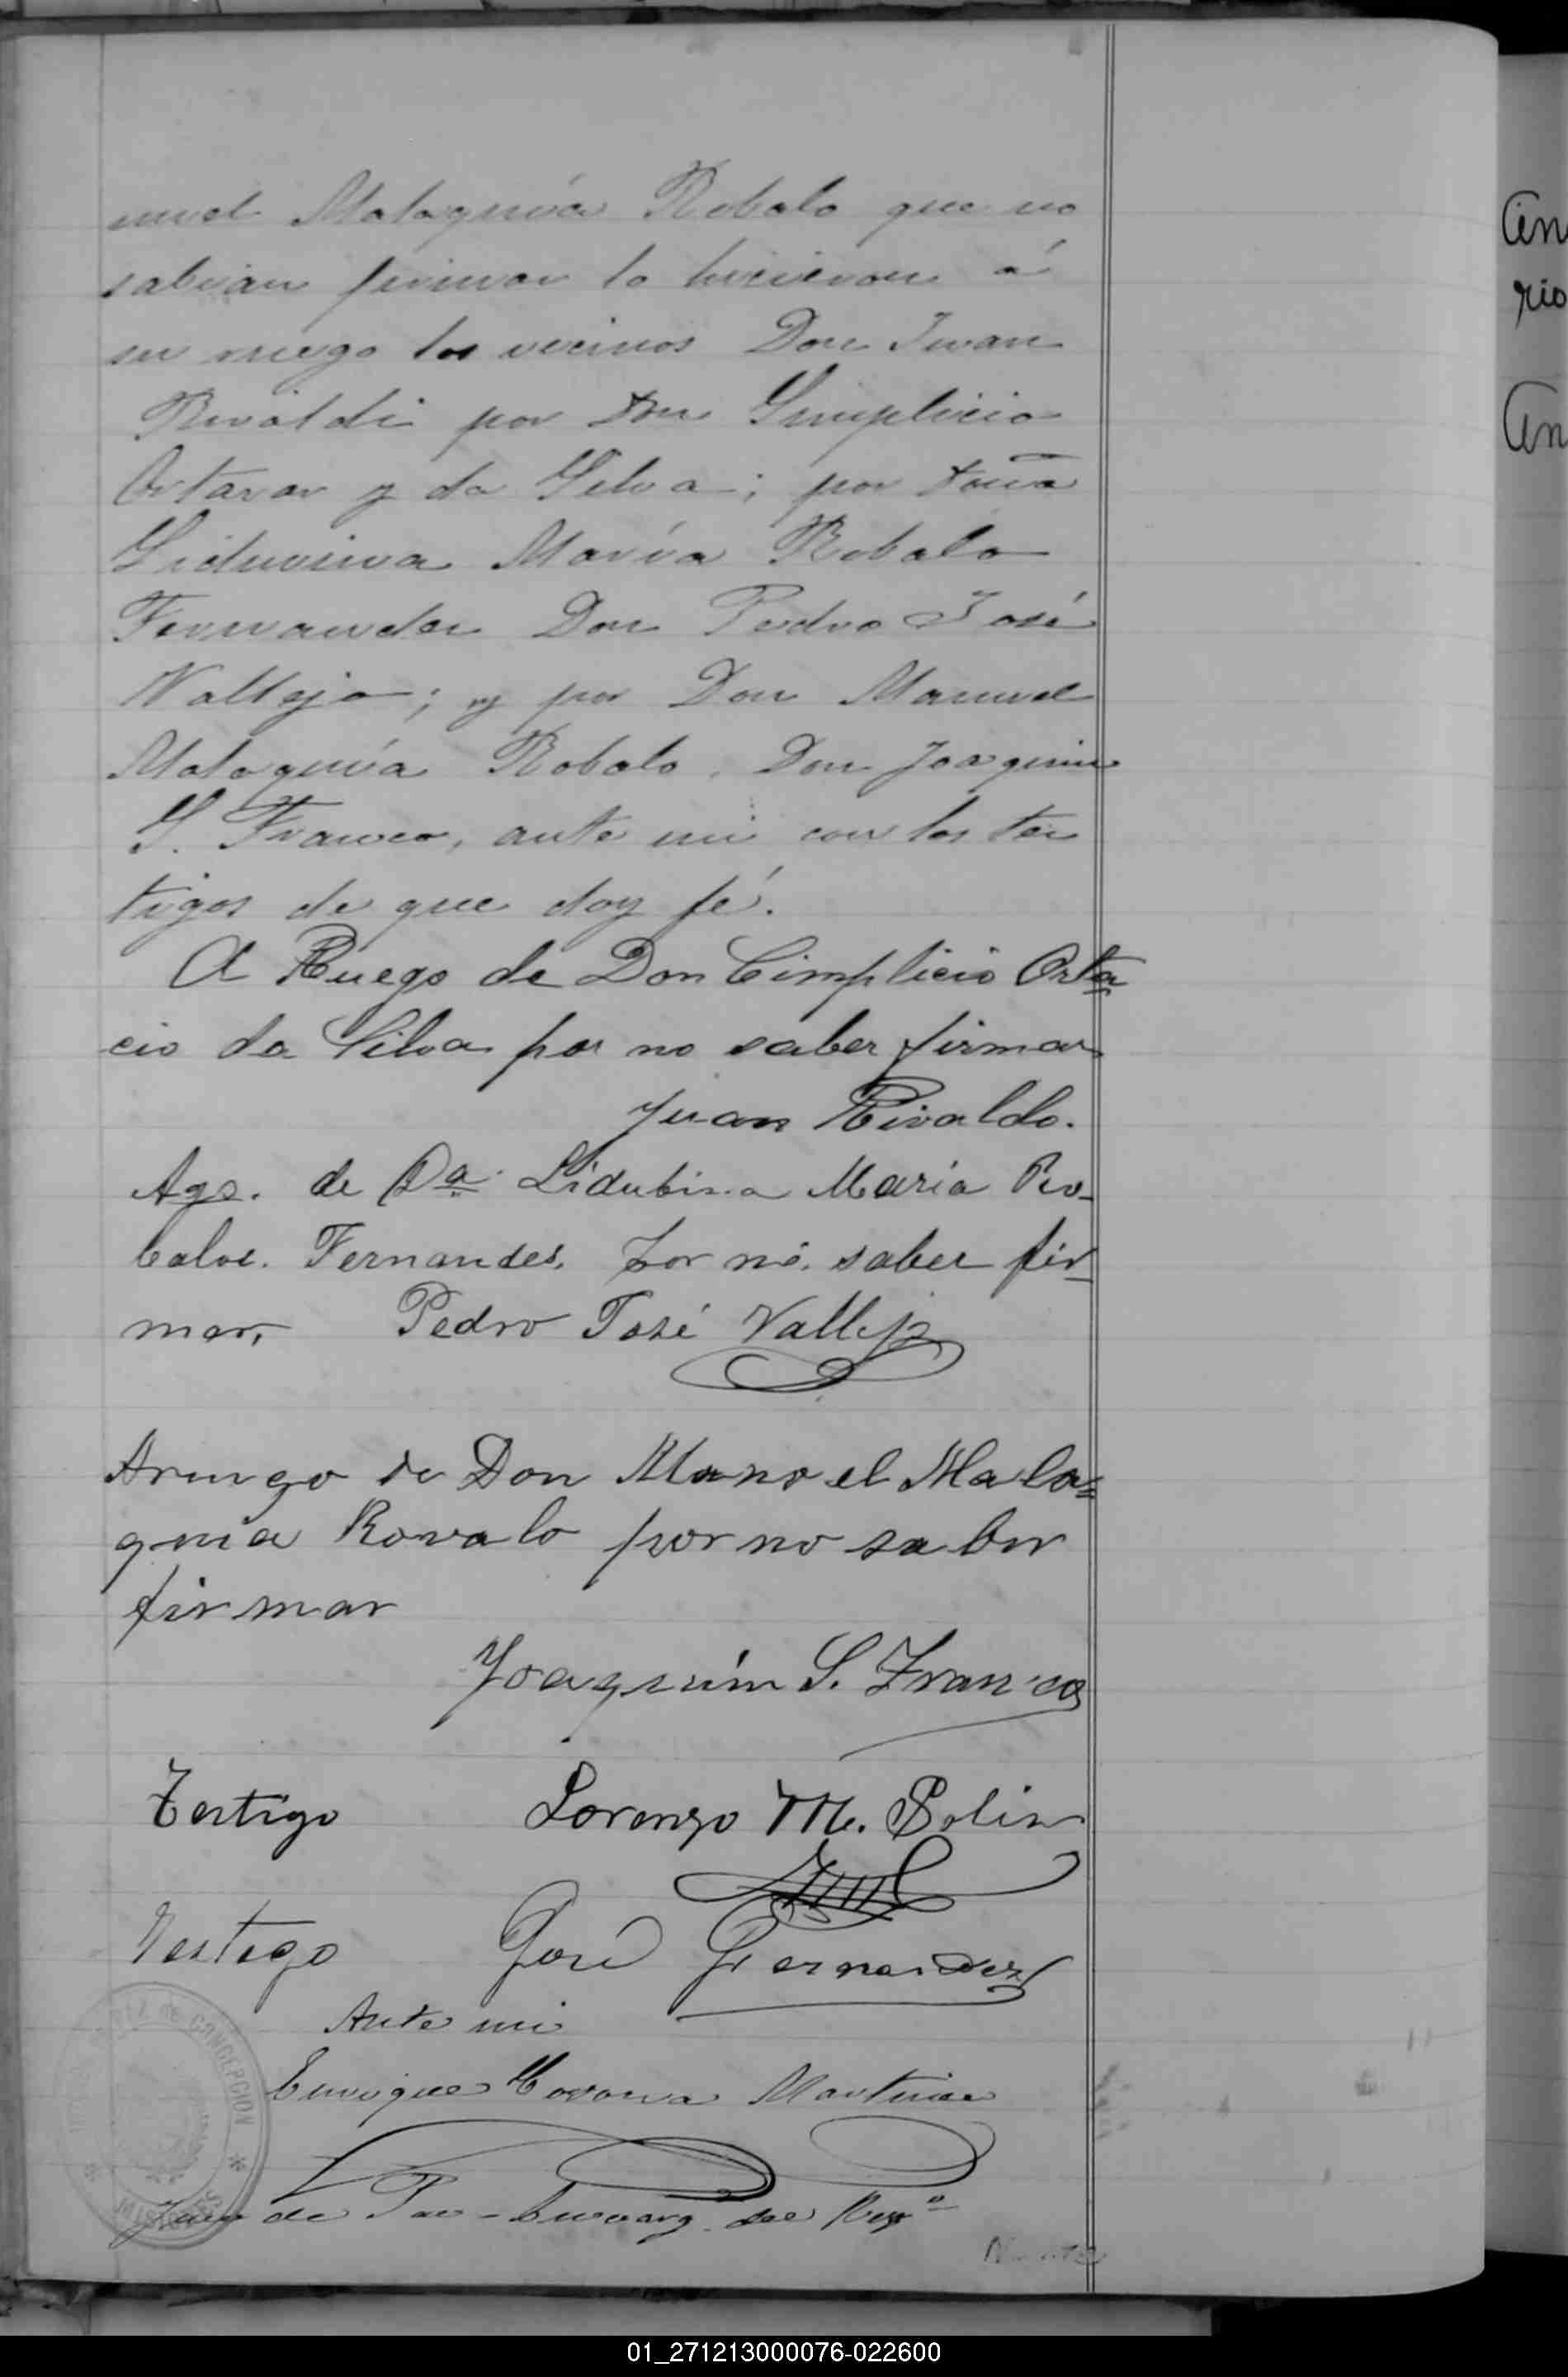 nuel Malaquía Robalo que no
sabian firmar lo hicieron á
su ruego los vecinos Don Juan
Rivaldi por Don Simplicio
y da Silva; por Doña
Liduvina María Robalo
Fernandez Don Pedro José
Vallejo; y por Don Manuel
Malaquía Robalo, Don Joaquin
S. Franco, ante mi con los tes
tigos de que doy fé.
A Ruego de Don Cimplicio Orta
cio da Silva por no saber firmar
Juan Rivaldo.
Ago. de Da. Lidubina María Ro-
balos. Fernandes. por no. saber fir-
mar, Pedro José Vallejo
Aruego de Don Manoel Mala=
quia Rovalo por no saber
firmar
Joaquím S. Franco
Testigo Lorenzo M. Solis
Testigo José Fernandez
Ante mi
Enrique Martinez
Juez de Paz - Encarg. del Regº
de CONCEPCION
Cin
rio
Cin
01_271213000076-022600